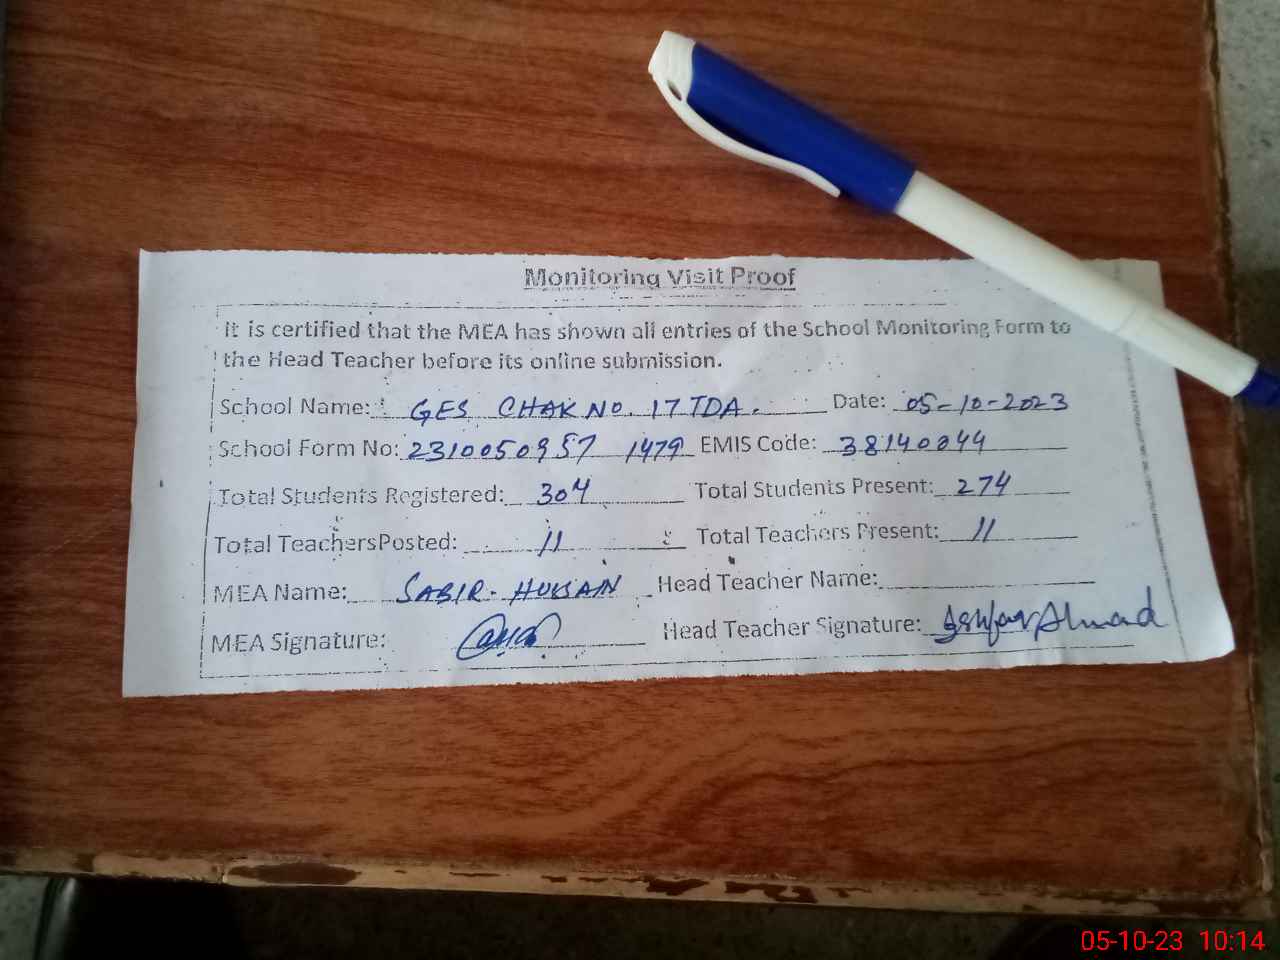 Monitoring Visit Proof
It is certified that the MEA has shown all entries of the School Monitoring Form to
the Head Teacher before its online submission.
School Name: GES CHAK NO. 17 TDA. Date: 05-10-2023
School Form No: 2310050957 1479 EMIS Code: 38140044
Total Students Registered: 304 Total Students Present: 274
Total TeachersPosted: 11 Total Teachers Present: 11
MEA Name: SABIR. HUSSAIN Head Teacher Name:
MEA Signature: Head Teacher Signature: Ashfaq Ahmad
05-10-23 10:14